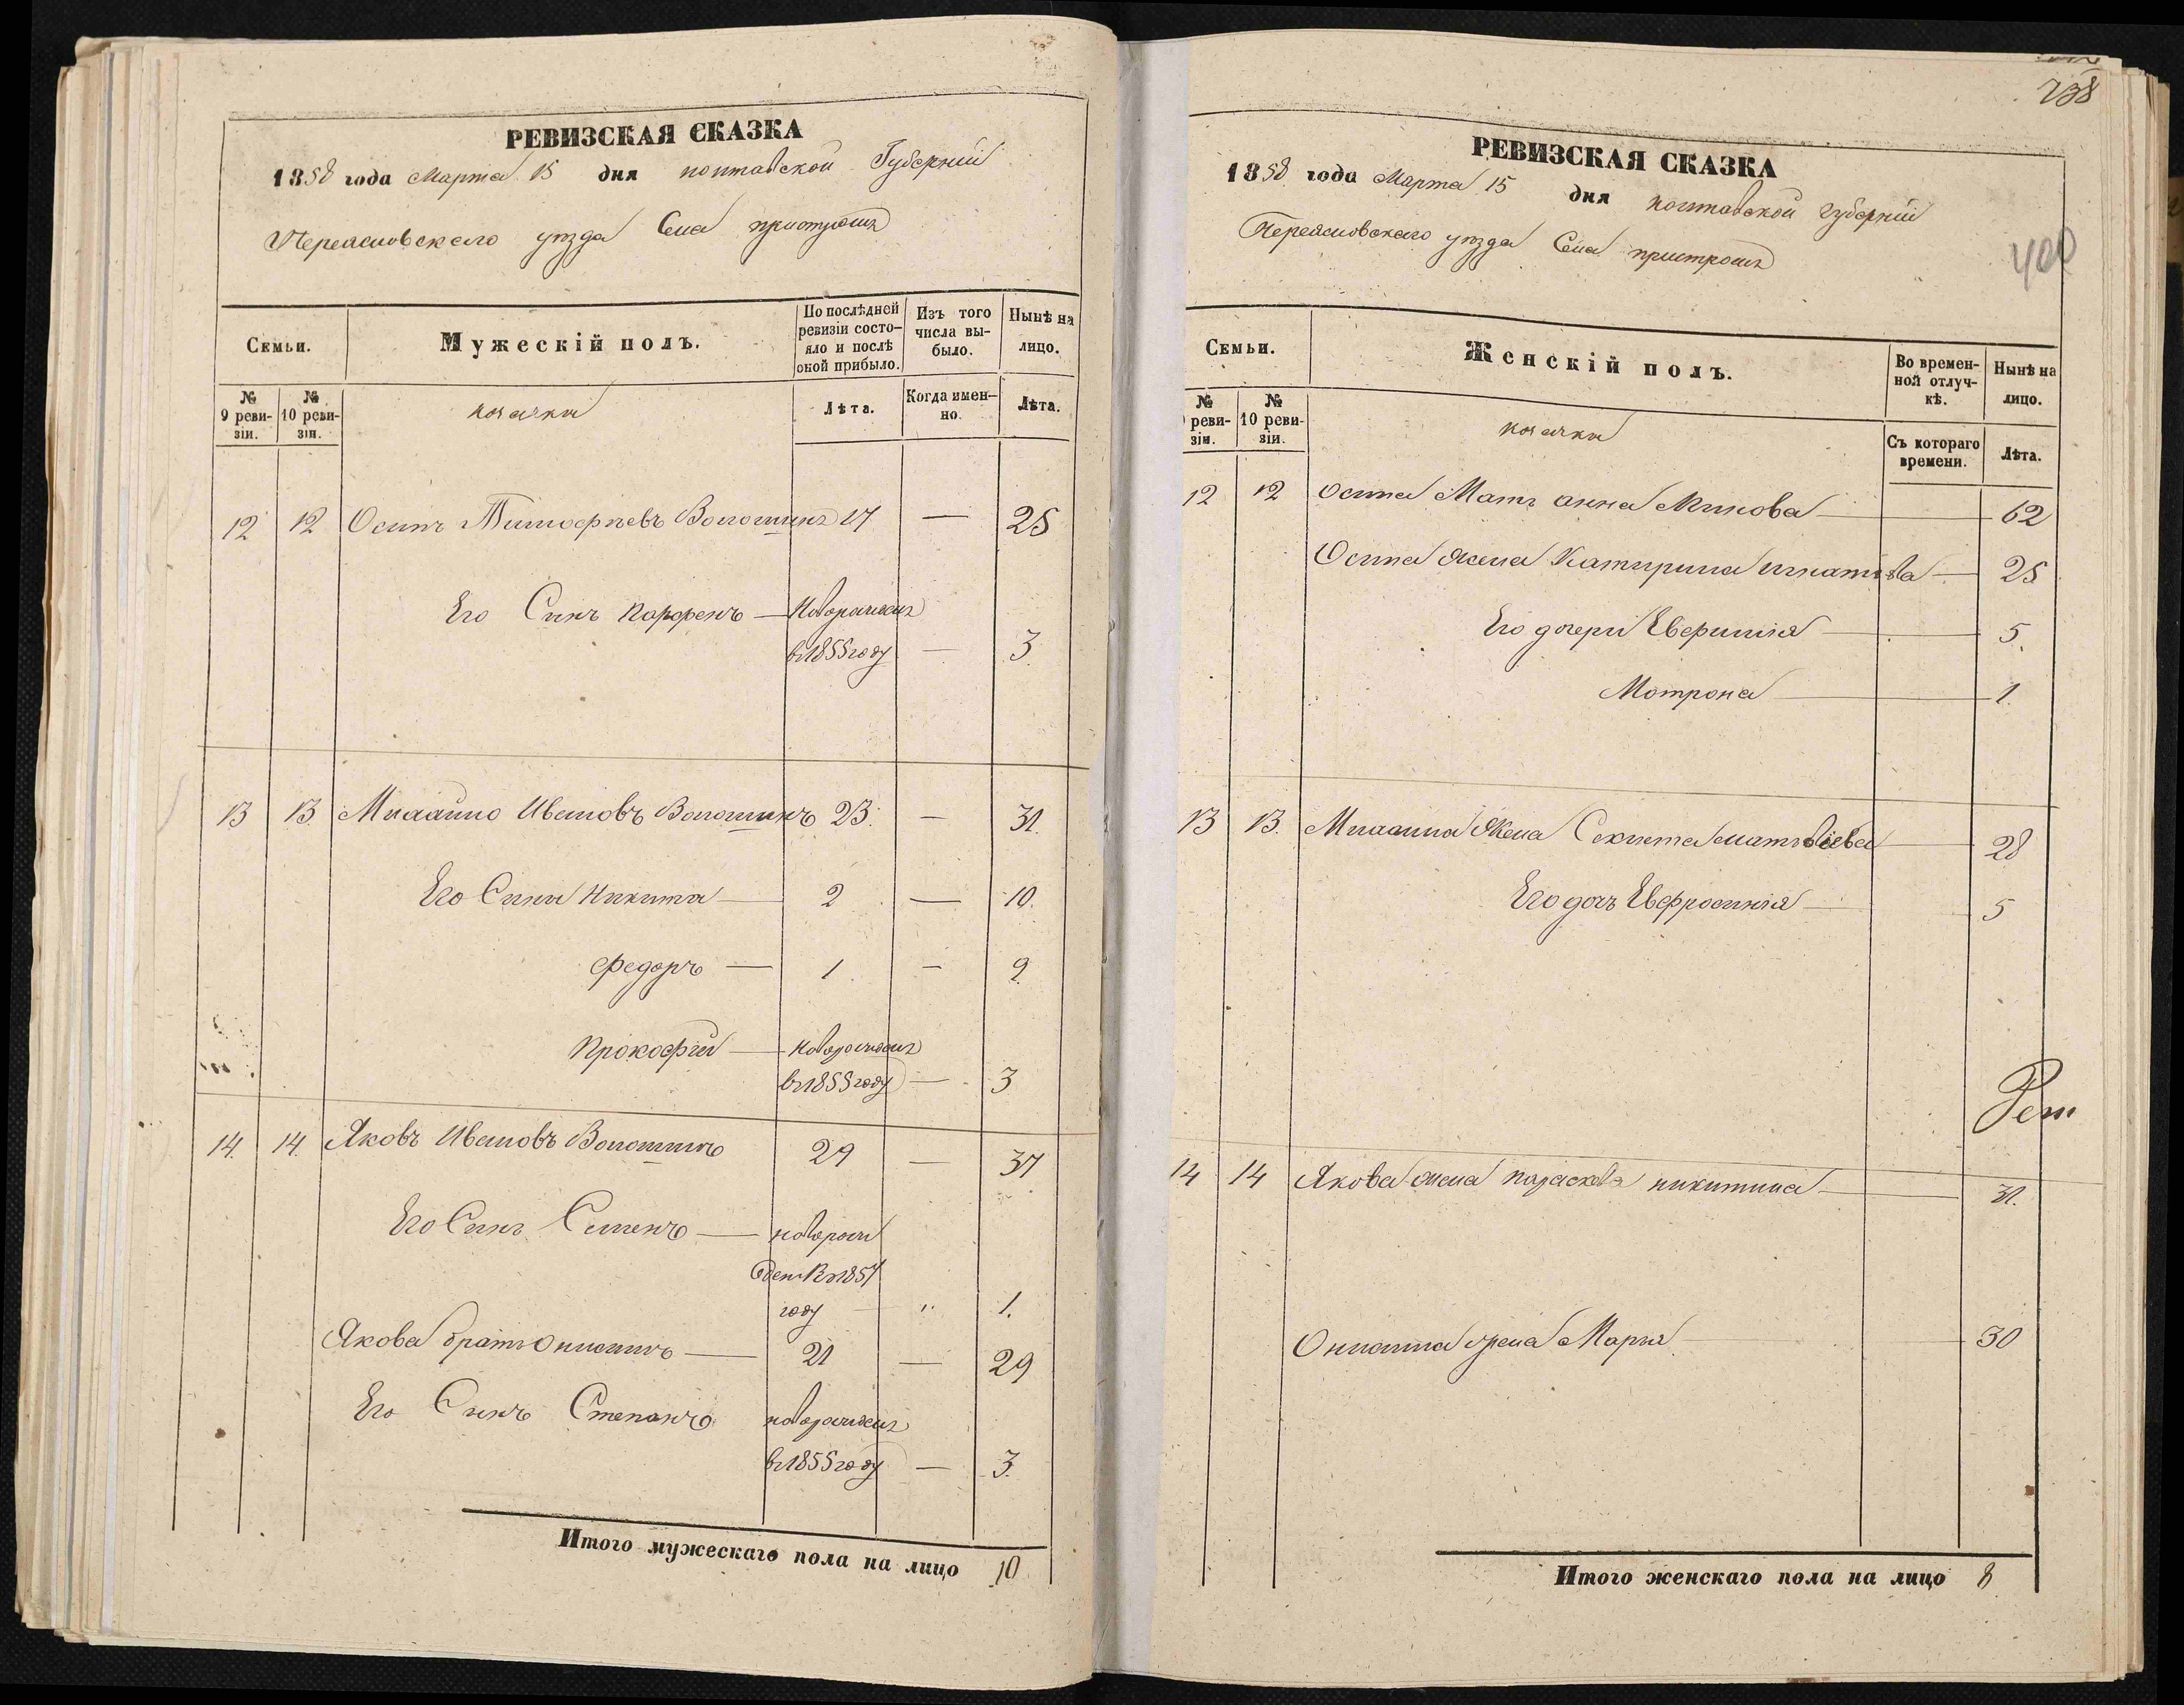 РЕВИЗСКАЯ СКАЗКА
1858 года Марта 15 дня полтавской Губерніи
Переясловского уѣзда Села пристромъ
Семьи.
Мужескій полъ.
По послѣдней ревизіи состояло и послѣ оной прибыло.
Изъ того числа выбыло.
Нынѣ на лицо.
№ 9 ревизіи.
№ 10 ревизіи.
козачки
Лѣта.
Когда именно.
Лѣта.
12 12 Осипъ Тимофѣевъ Волошинъ 17 — 25
Его Синъ Парфенъ — Новорожденъ
въ 1855 году — 3
13 13. Михайло Ивановъ Волошинъ 23. — 31.
Его Сини Никита — 2 — 10.
Федоръ — 1. — 9
Прокофій — Новорожденъ
въ 1855 году — 3
14. 14. Яковъ Ивановъ Волошинъ 29 — 37
Его Синъ Семенъ — новорож
денъ Въ 1857
году — " 1.
Якова братъ Онисимъ — 21 — 29
Его Синъ Степанъ новорожденъ
въ 1855 году — 3.
Итого мужескаго пола на лицо 10
238
400
РЕВИЗСКАЯ СКАЗКА
1858 года Марта 15 дня полтавской губерніи
Переясловского уѣзда Села пристромъ
Семьи.
Женскій полъ.
Во временной отлучкѣ.
Нынѣ на лицо.
№ 9 ревизіи.
№ 10 ревизіи.
козачки
Съ котораго времени.
Лѣта.
12 12 Осипа Мать анна Минова — 62
Осипа жена Катирина игнатова — 25
Его дочери Евфимія — 5.
Мотрона — 1.
13 13. Михаила Жена Секлета матвіева — 28
Его дочъ Евфросинія — 5
14 14 Якова жена параскова никитина — 31.
Онисима жена Марья — 30
Итого женскаго пола на лицо 8